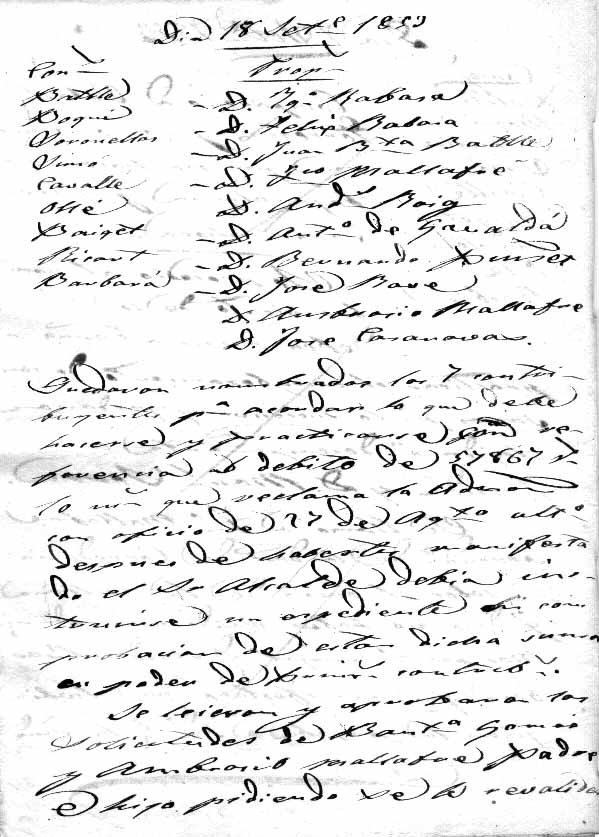 Dia 18 Setᵉ 1853
Conˢ
Batlle
Roqué
Voronellas
Simó
Cavalle
Ollé
Baiget
Ricart
Barbará
Propˢ
D. Igº Rabasa
D. Felix Rabasa
D. Juan Bᵗᵃ Batlle
D. Mallafré
D. Andˢ Roig
D. Antº de Gavaldá
D. Bernardo
D. José Bové
D. Ambrosio Mallafre
D. José Casanovas.
Quedaron nombrados los 7 contri-
buyentes pª acordar lo que debe
hacerse y practicarse con re-
ferencia al debito de 57867 rˢ
que reclama la Admon
con oficio de 27 de Agᵗº ultº
despues de haberles manifesta
do el Sr Alcalde debia ins-
truirse un espediente en com
probacion de estar dicha suma
en poder de contribˢ.
Se leieron y aprobaron las
solicitudes de Bautᵃ Gomis
y Ambrosio Mallafre Padre
e hijo pidiendo se le revalida